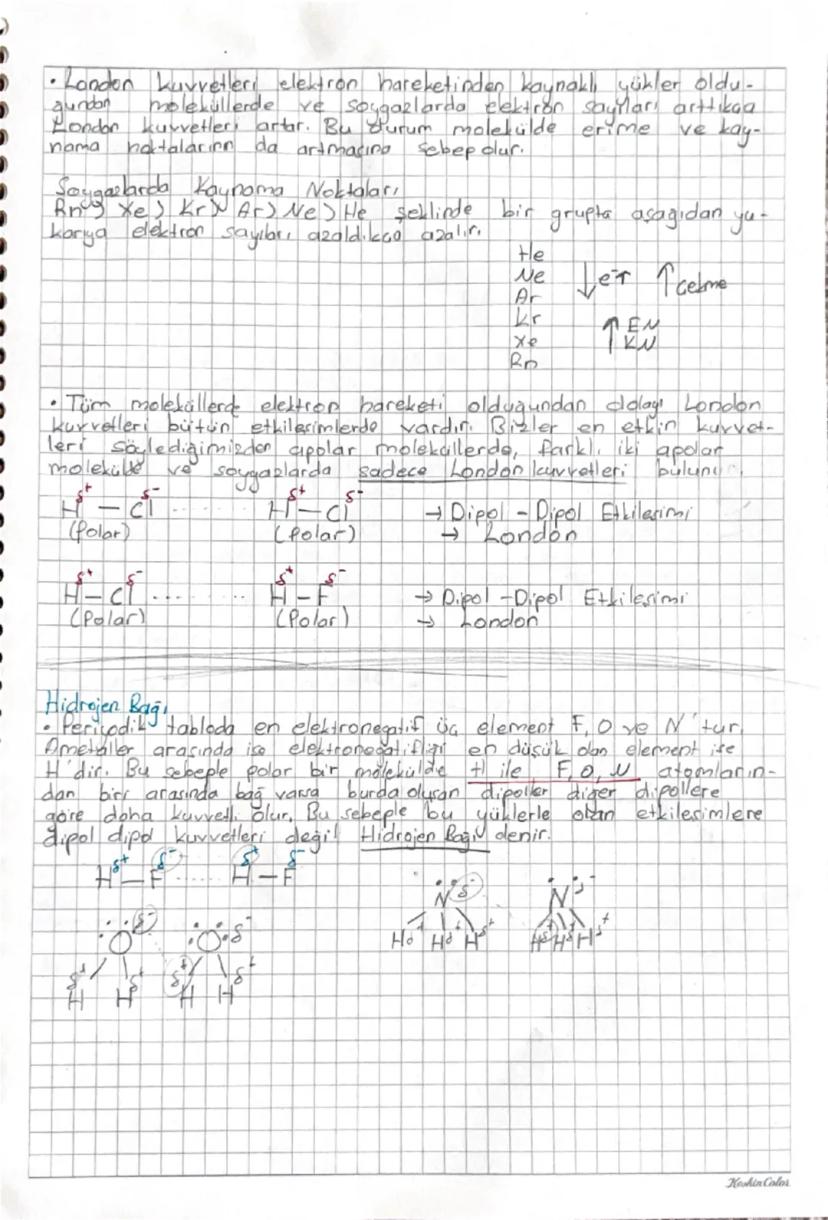 • London kuvvetleri elektron hareketinden kaynaklı yükler oldu-
ğundan moleküllerde ve soygazlarda elektron sayıları arttıkça
London kuvvetleri artar. Bu durum molekülde erime ve kay-
nama noktalarının da artmasına sebep olur.
Soygazlarda Kaynama Noktaları
Rn > Xe > Kr > Ar > Ne > He şeklinde bir grupta aşağıdan yu-
karıya elektron sayıları azaldıkça azalır.
He
Ne ↓ e⁻↑ ↑ çekme
Ar
Kr ↑ EN
Xe KN
Rn
• Tüm moleküllerde elektron hareketi olduğundan dolayı London
kuvvetleri bütün etkileşimlerde vardır. Bizler en etkin kuvvet-
leri söylediğimizden apolar moleküllerde, farklı iki apolar
molekülde ve soygazlarda sadece London kuvvetleri bulunur.
δ+ δ- δ+ δ-
H — Cl ........ H — Cl → Dipol - Dipol Etkileşimi
(Polar) (Polar) → London
δ+ δ- δ+ δ-
H — Cl ........ H — F → Dipol - Dipol Etkileşimi
(Polar) (Polar) → London
Hidrojen Bağı
• Periyodik tabloda en elektronegatif üç element F, O ve N'tur.
Ametaller arasında ise elektronegatifliği en düşük olan element ise
H'dir. Bu sebeple polar bir molekülde H ile F, O, N atomların-
dan biri arasında bağ varsa burda oluşan dipoller diğer dipollere
göre daha kuvvetli olur. Bu sebeple bu yüklerle olan etkileşimlere
dipol dipol kuvvetleri değil Hidrojen Bağı denir.
Hδ+ — Fδ- ...... Hδ+ — Fδ-
N δ- N δ-
Hδ+ Hδ+ Hδ+ Hδ+ Hδ+ Hδ+
O δ- O δ-
δ+ δ+ δ+ δ+
H H H H
KeskinColor